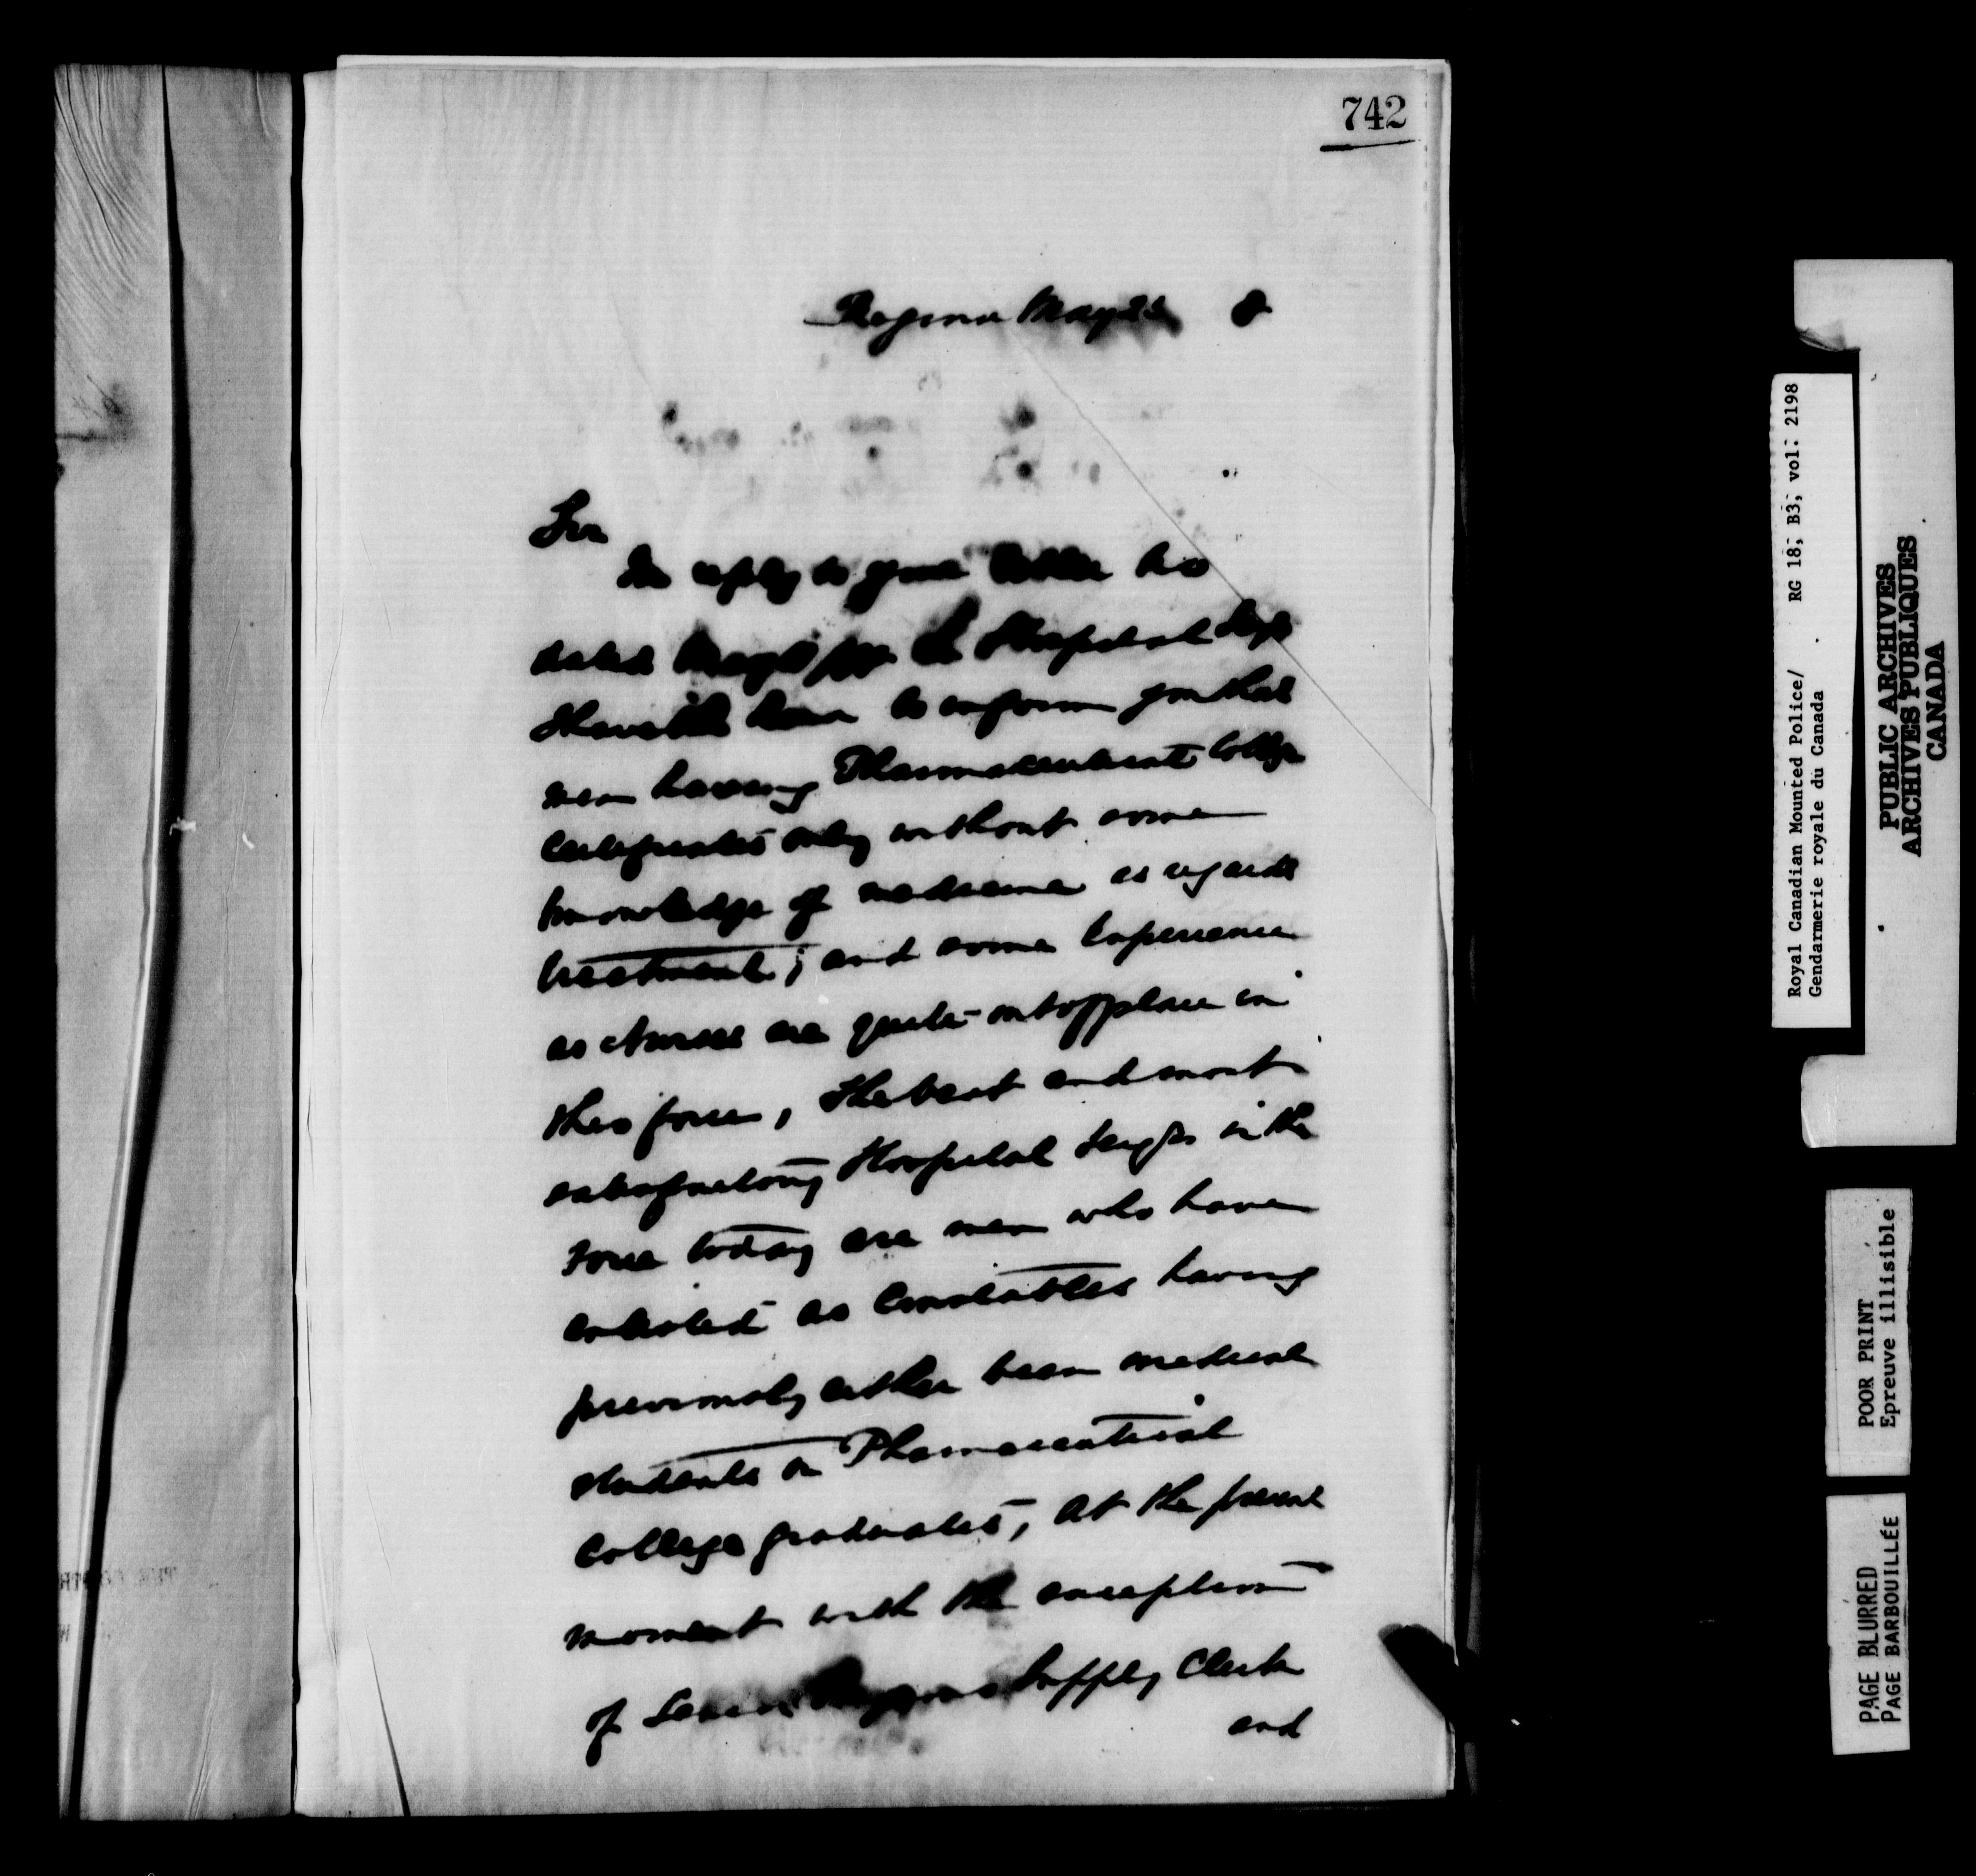 742
Regina May 8
Sir
In reply to your letter
dated May Hospital Sergts
I have the honor to inform you that
men having Pharmaceutical College
Certificates only without some
knowledge of medicine as regards
treatment; and some Experience
as Nurses are quite out of place in
this force, The best and most
satisfactory Hospital Sergts in the
Force today are men who have
enlisted as Constables having
previously either been medical
students or Pharmaceutical
College graduates, At the present
moment with the exception
of Supply Clerk
and
Royal Canadian Mounted Police/ RG 18, B3, vol: 2198
Gendarmerie royale du Canada
PUBLIC ARCHIVES
ARCHIVES PUBLIQUES
CANADA
POOR PRINT
Epreuve illisible
PAGE BLURRED
PAGE BARBOUILLÉE